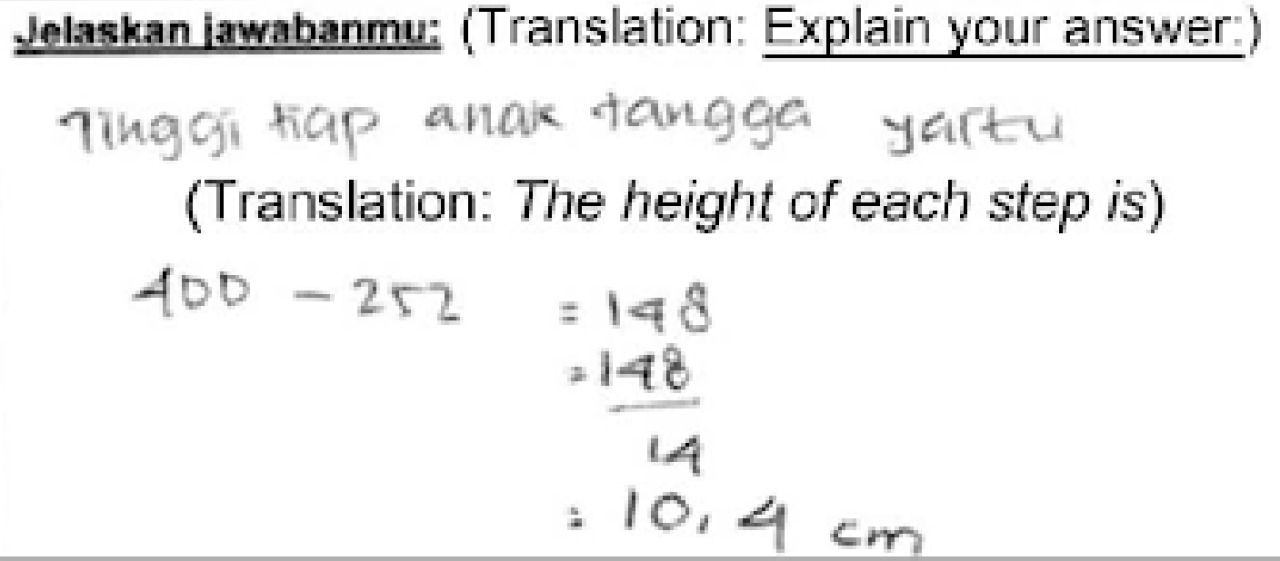 Jelaskan jawabanmu: (Translation: Explain your answer:)
Tinggi tiap anak tangga yaitu
(Translation: The height of each step is)
400 - 252 = 148
= 148
14
= 10,4 cm